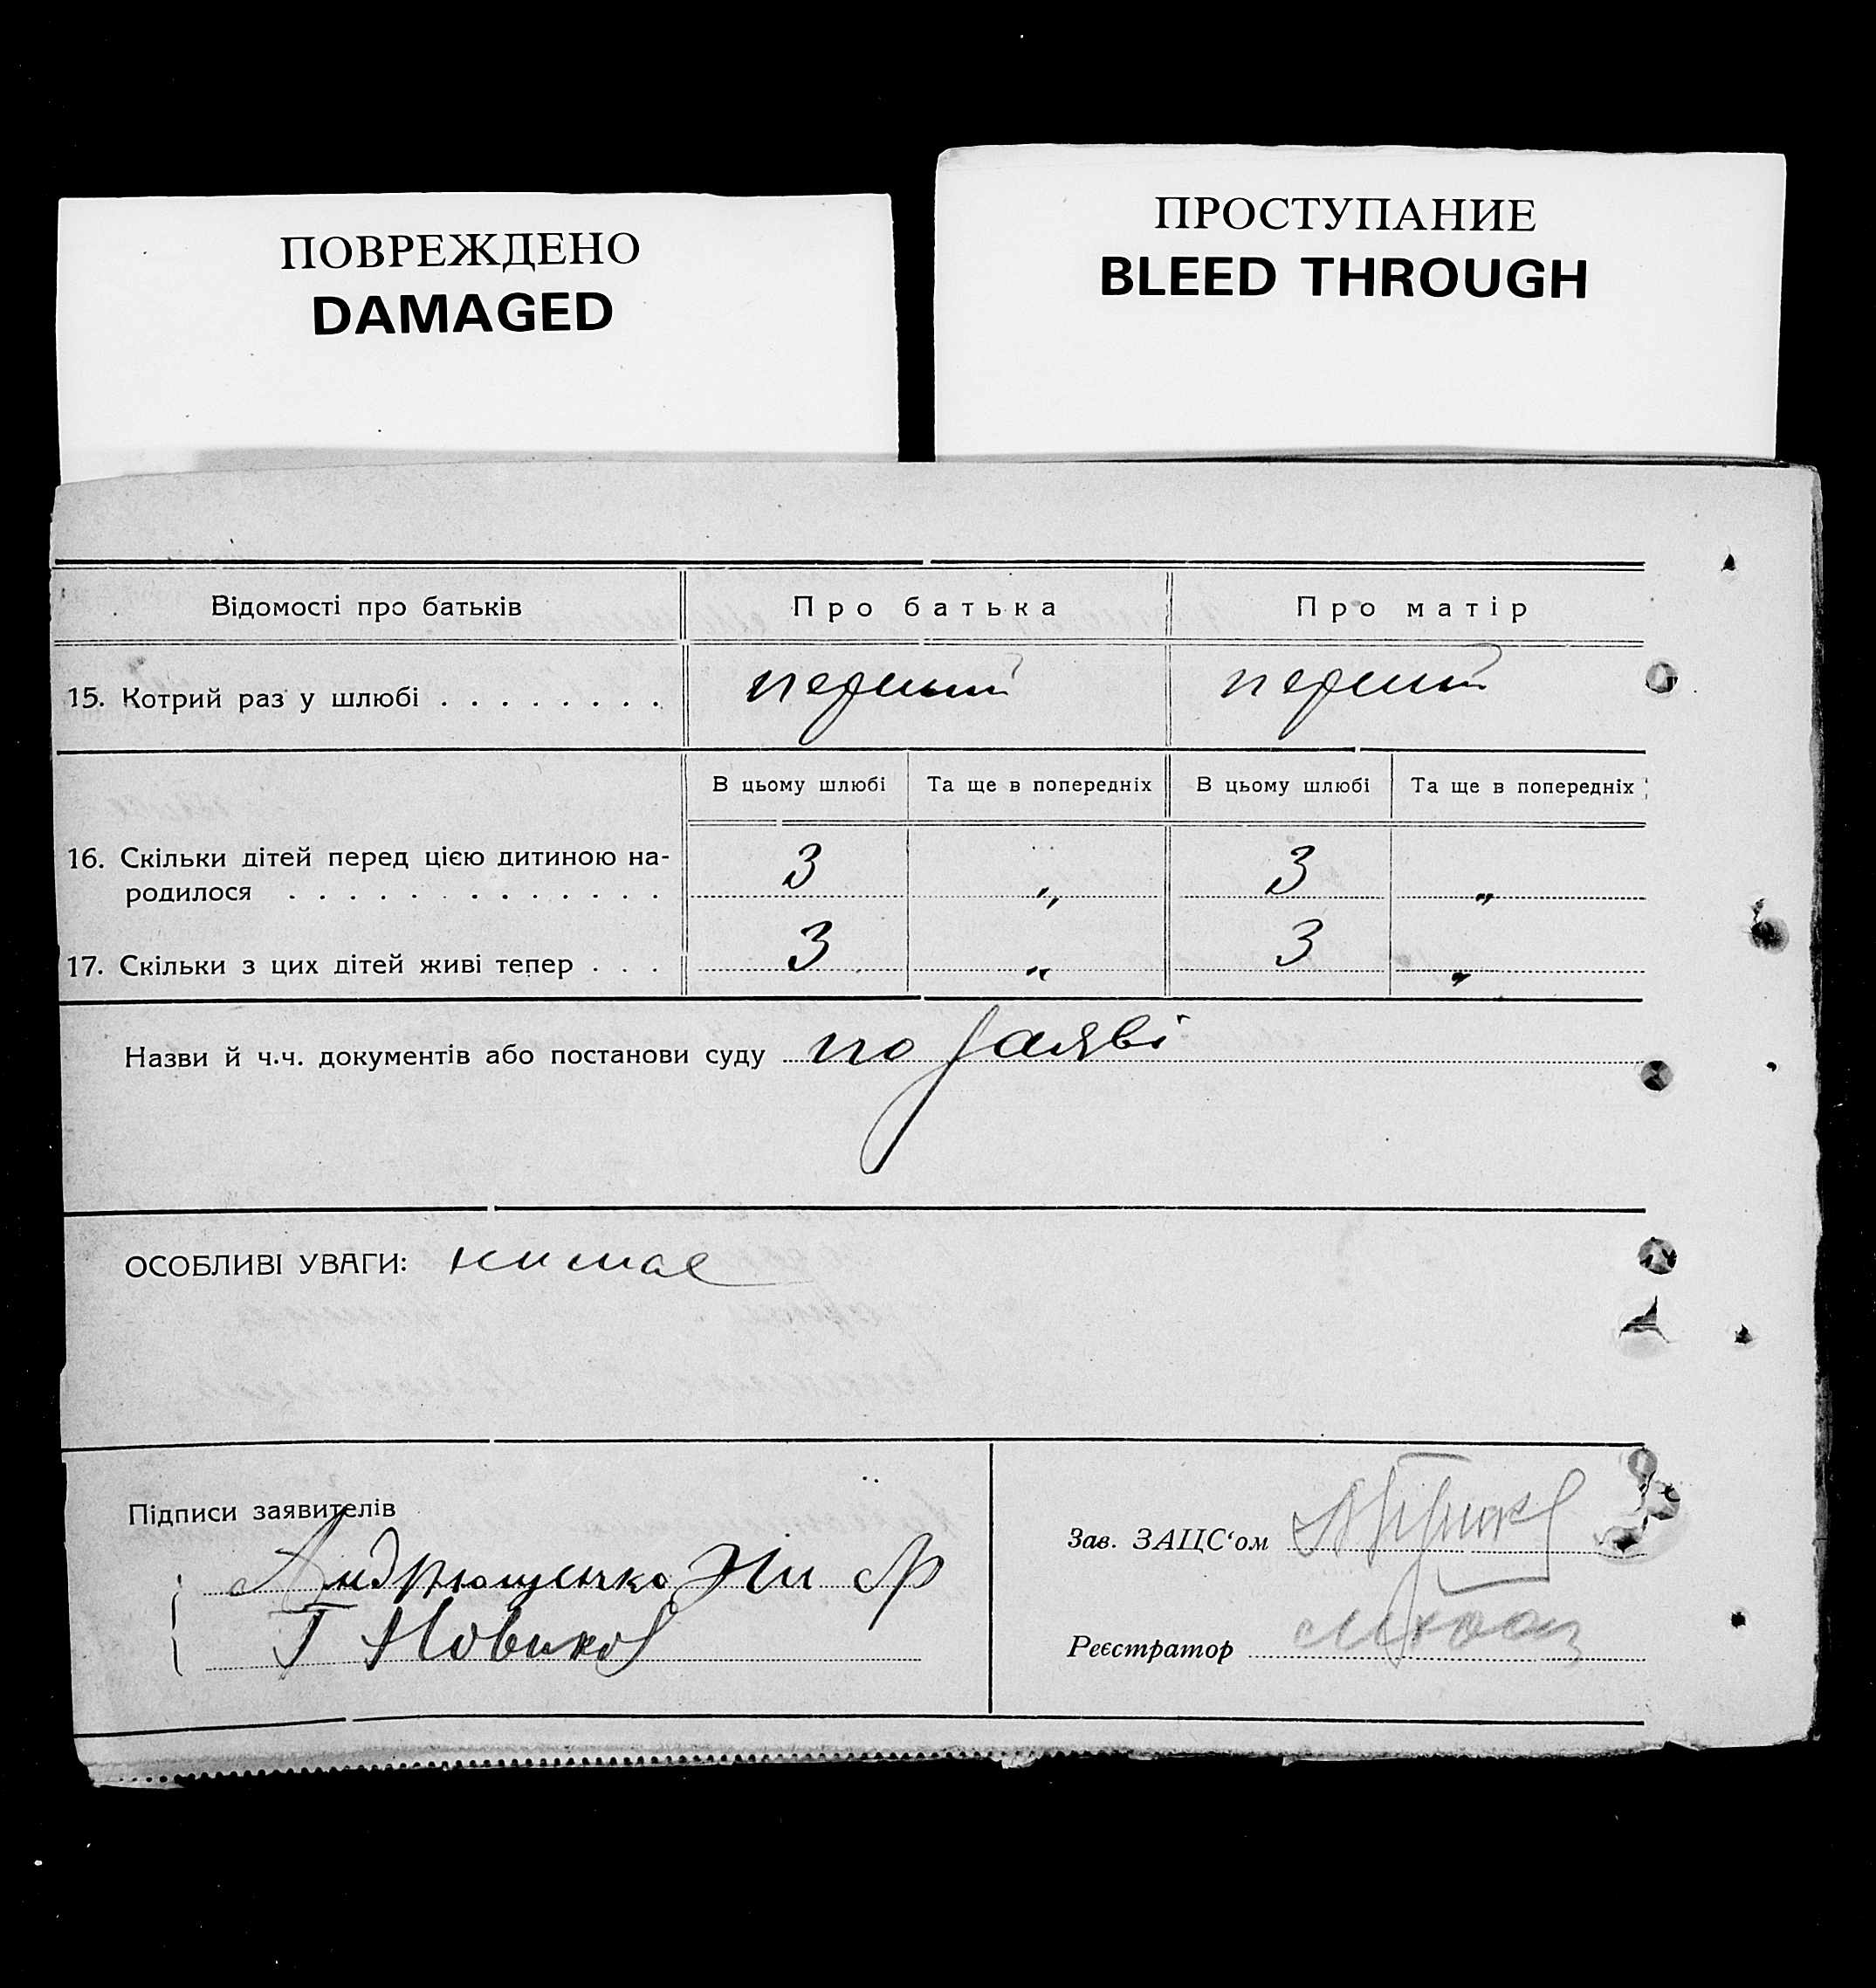 ПОВРЕЖДЕНО
DAMAGED
ПРОСТУПАНИЕ
BLEED THROUGH
Відомості про батьків Про батька Про матір
15. Котрий раз у шлюбі . . . . . . . . перший перший
В цьому шлюбі Та ще в попередніх В цьому шлюбі Та ще в попередніх
16. Скільки дітей перед цією дитиною на-
родилося . . . . . . . . . . . . . 3 „ 3 „
17. Скільки з цих дітей живі тепер . . . 3 „ 3 „
Назви й ч.ч. документів або постанови суду по заяві
ОСОБЛИВІ УВАГИ: нимае
Підписи заявителів
Андрющенко
Г Новиков
Зав. ЗАЦС‘ом
Реєстратор